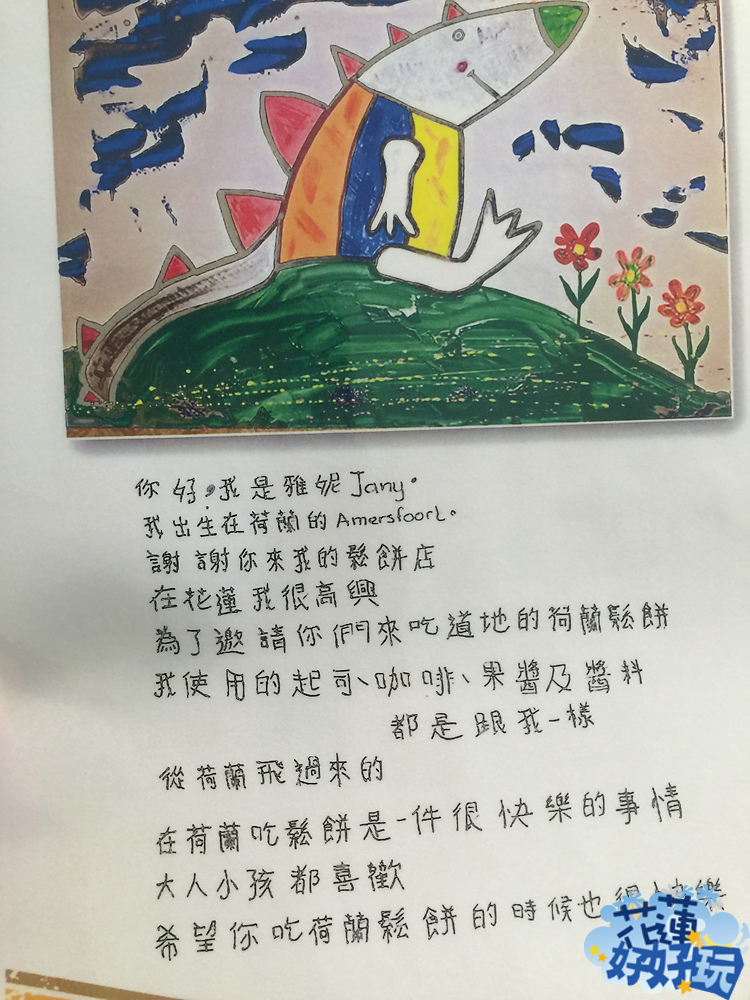 你好,我是雅妮Jany.
我出生在荷蘭的Amersfoort.
謝謝你來我的鬆餅店
在花蓮我很高興
為了邀請你們來吃道地的荷蘭鬆餅
我使用的起司、咖啡、果醬及醬料
都是跟我一樣
從荷蘭飛過來的
在荷蘭吃鬆餅是一件很快樂的事情
大人小孩都喜歡
希望你吃荷蘭鬆餅的時候也很快樂
花蓮
好好玩